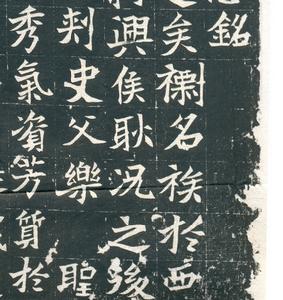 銘
矣名族於西
興侯耿況之後
刺史父樂聖
秀氣資芳質於